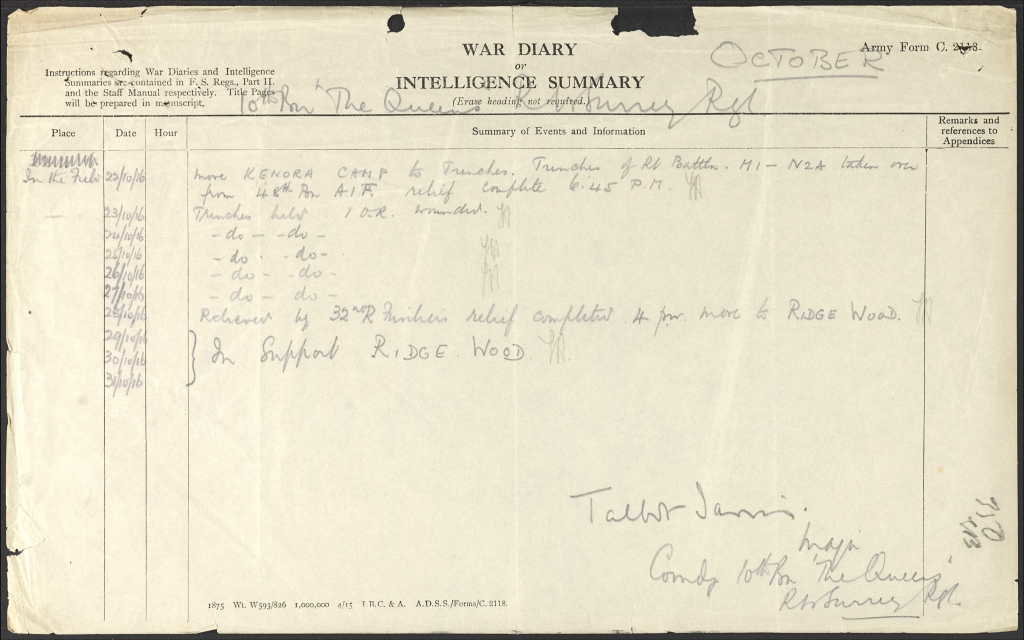 WAR DIARY
or
INTELLIGENCE SUMMARY
(Erase heading not required.)
OCTOBER
Army Form C. 2118.
Instructions regarding War Diaries and Intelligence
Summaries are contained in F. S. Regs., Part II.
and the Staff Manual respectively. Title Pages
will be prepared in manuscript.
10th Bn "The Queens" Rl W Surrey Rgt
Place
Date
Hour
Summary of Events and Information
Remarks and
references to
Appendices
In the Field 22/10/16 move KENORA CAMP to Trenches. Trenches of Rt Battn. M1 - N2A taken over
from 48th Bn A.I.F. relief complete 6.45 P.M.
23/10/16 Trenches held 1 O.R. wounded.
24/10/16 - do - - do -
25/10/16 - do - - do -
26/10/16 - do - - do -
27/10/16 - do - do -
28/10/16 Relieved by 32nd R Fusiliers relief completed 4 pm. move to RIDGE WOOD.
29/10/16
30/10/16 } In Support RIDGE WOOD
31/10/16
Talbot Jarvis.
Major
Comdg 10th Bn "The Queens"
Rl W Surrey Rgt.
1875 Wt. W593/826 1,000,000 4/15 J.B.C. & A. A.D.S.S./Forms/C. 2118.